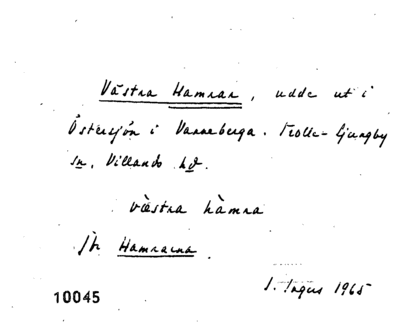 Västra Hamrar, udde ut i
Östersjön i Vanneberga. Trolle-Ljungby
sn, Villands hd.
västra hàmra
jfr Hamrarna.
S. Ingers 1965
10045